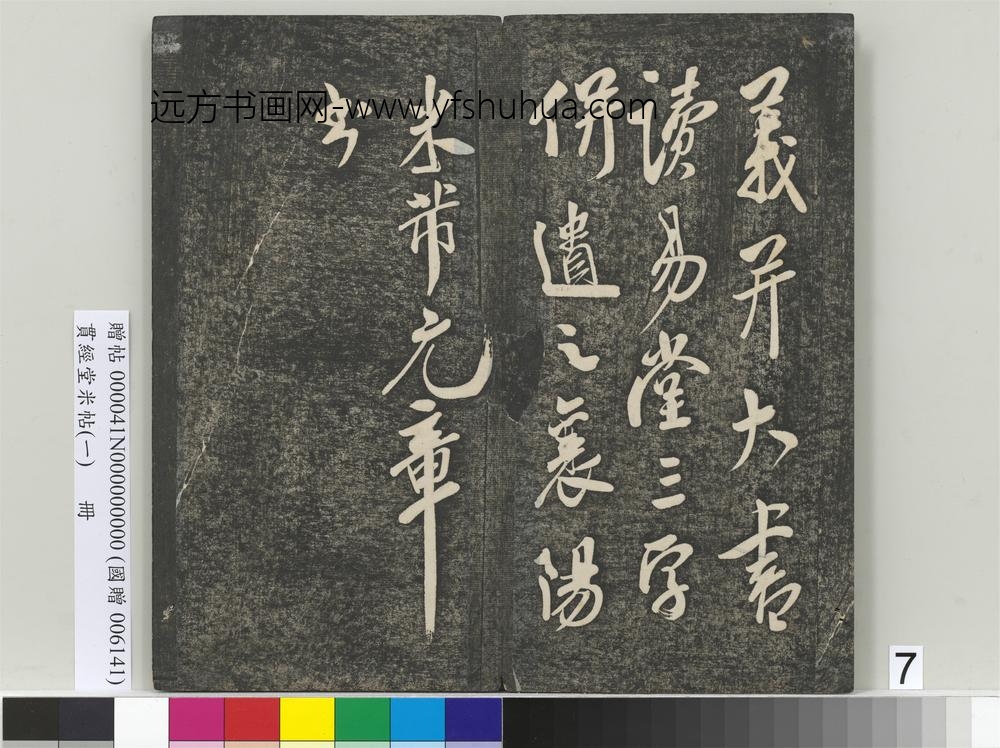 義并大書
讀易堂三字
併遺之襄陽
米芾元章
书
远方书画网-www.yfshuhua.com
贈帖 000041N000000000 (國贈 006141)
貫經堂米帖(一) 冊
7